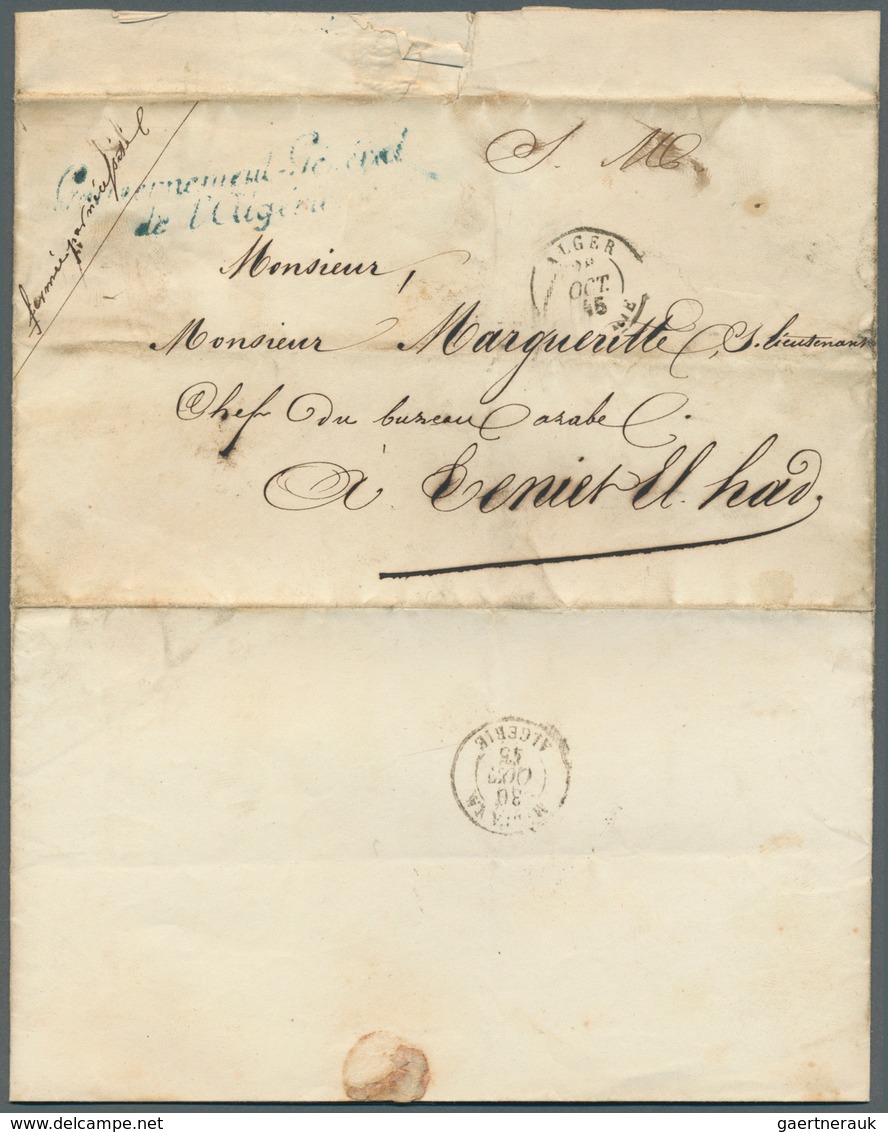 fermée par nécessité
Gouvernement Général
de l'Algérie
S. M.
ALGER
OCT.
45
Monsieur,
Monsieur Margueritte, S. lieutenant
Chef du bureau arabe
à Teniet El had.
MILIANA
30
OCT
45
ALGERIE
gaertnerauk